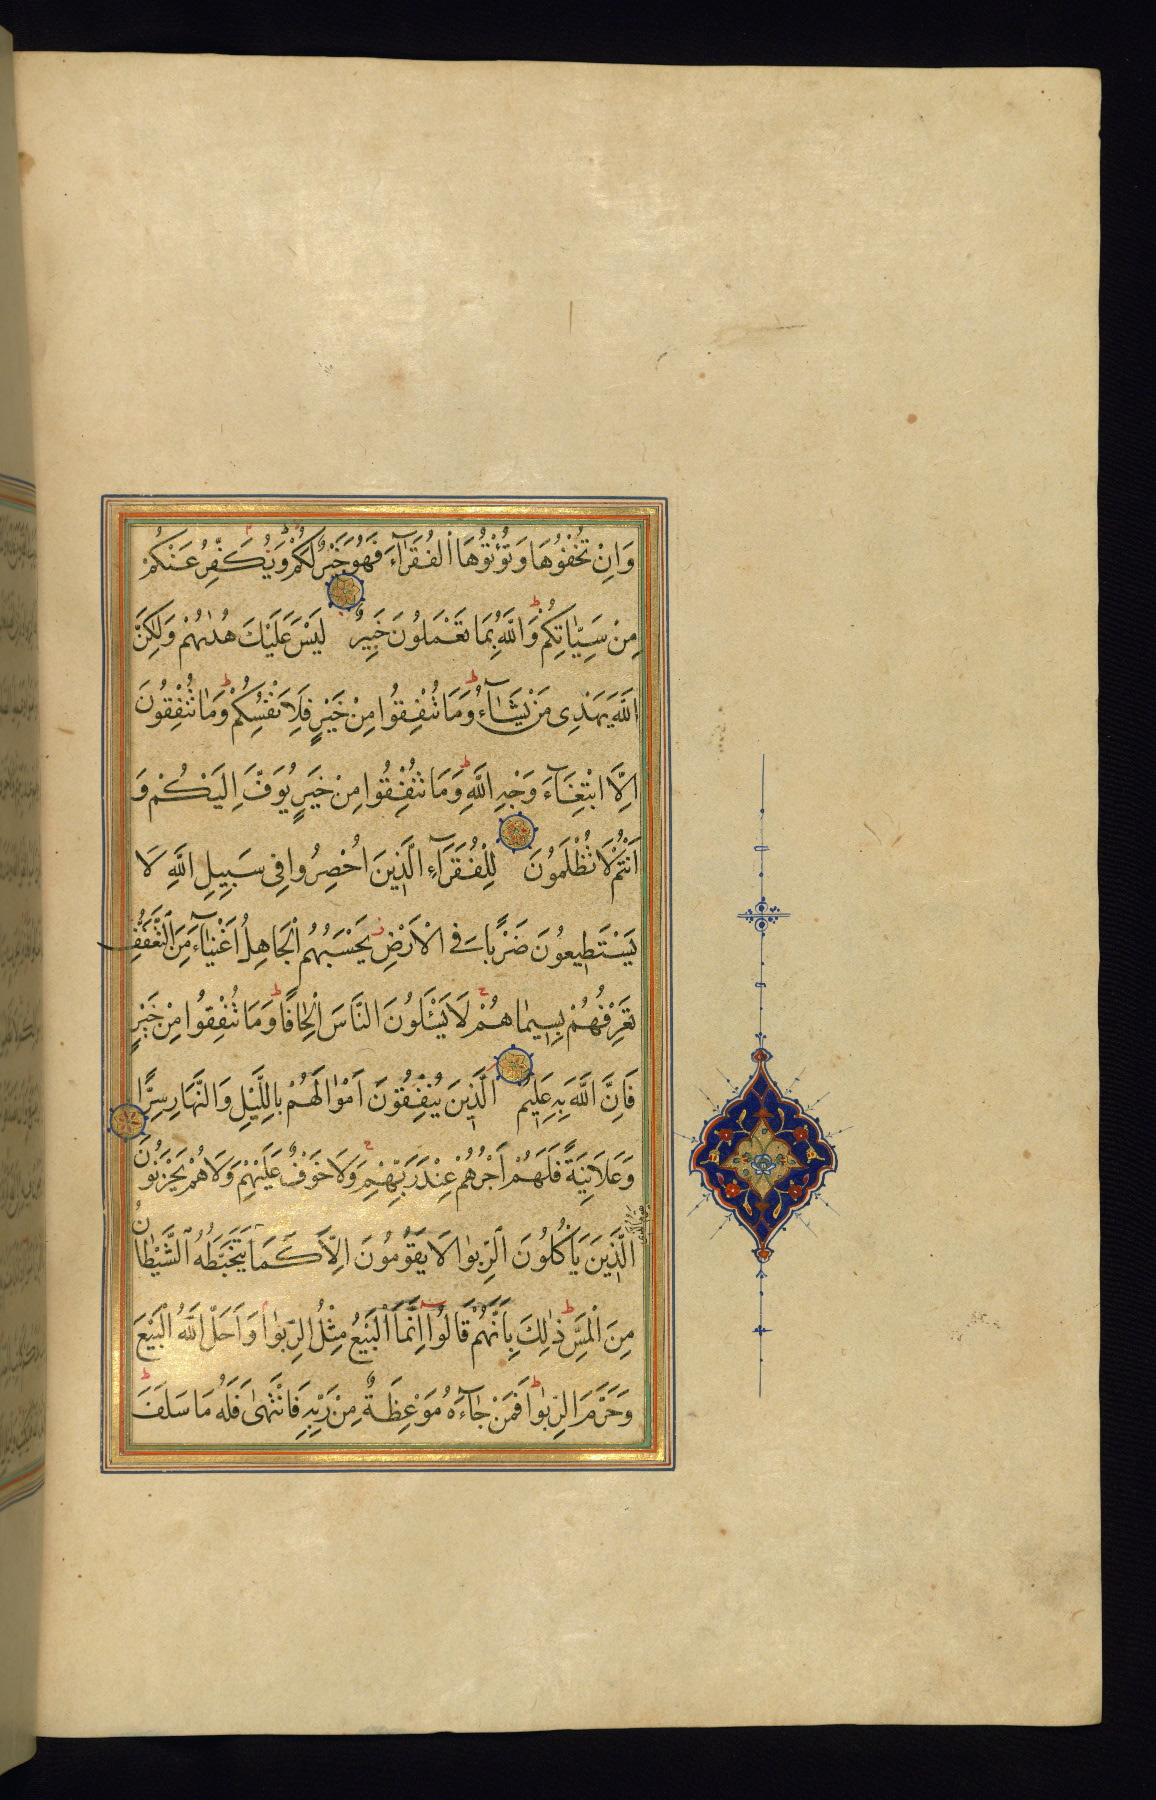 وَاِنْ تُخْفُوهَا وَتُؤْتُوهَا الْفُقَرَآءَ فَهُوَ خَيْرٌ لَكُمْ وَيُكَفِّرُ عَنْكُمْ
مِنْ سَيِّاٰتِكُمْ وَاللّٰهُ بِمَا تَعْمَلُونَ خَبِيرٌ لَيْسَ عَلَيْكَ هُدٰىهُمْ وَلٰكِنَّ
اللّٰهَ يَهْدِى مَنْ يَشَآءُ وَمَا تُنْفِقُوا مِنْ خَيْرٍ فَلِاَنْفُسِكُمْ وَمَا تُنْفِقُونَ
اِلَّا ابْتِغَآءَ وَجْهِ اللّٰهِ وَمَا تُنْفِقُوا مِنْ خَيْرٍ يُوَفَّ اِلَيْكُمْ وَ
اَنْتُمْ لَا تُظْلَمُونَ لِلْفُقَرَآءِ الَّذِينَ اُحْصِرُوا فِى سَبِيلِ اللّٰهِ لَا
يَسْتَطِيعُونَ ضَرْبًا فِى الْاَرْضِ يَحْسَبُهُمُ الْجَاهِلُ اَغْنِيَآءَ مِنَ التَّعَفُّفِ
تَعْرِفُهُمْ بِسِيمٰاهُمْ لَا يَسْـَٔلُونَ النَّاسَ اِلْحَافًا وَمَا تُنْفِقُوا مِنْ خَيْرٍ
فَاِنَّ اللّٰهَ بِهِ عَلِيمٌ الَّذِينَ يُنْفِقُونَ اَمْوٰالَهُمْ بِاللَّيْلِ وَالنَّهَارِ سِرًّا
وَعَلَانِيَةً فَلَهُمْ اَجْرُهُمْ عِنْدَ رَبِّهِمْ وَلَا خَوْفٌ عَلَيْهِمْ وَلَا هُمْ يَحْزَنُونَ
الَّذِينَ يَاْكُلُونَ الرِّبٰوا لَا يَقُومُونَ اِلَّا كَمَا يَقُومُ الَّذِى يَتَخَبَّطُهُ الشَّيْطَانُ
مِنَ الْمَسِّ ذٰلِكَ بِاَنَّهُمْ قَالُوا اِنَّمَا الْبَيْعُ مِثْلُ الرِّبٰوا وَاَحَلَّ اللّٰهُ الْبَيْعَ
وَحَرَّمَ الرِّبٰوا فَمَنْ جَآءَهُ مَوْعِظَةٌ مِنْ رَبِّهِ فَانْتَهٰى فَلَهُ مَا سَلَفَ